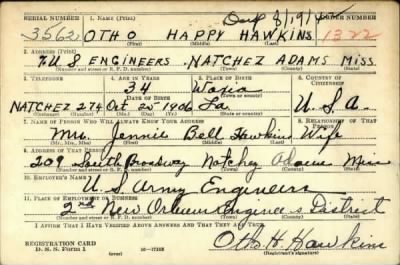 SERIAL NUMBER 1. NAME (Print) ORDER NUMBER
3562 OTHO HAPPY HAWKINS 1322
(First) (Middle) (Last)
2. ADDRESS (Print)
% U S ENGINEERS NATCHEZ ADAMS MISS.
(Number and street or R. F. D. number) (Town) (County) (State)
3. TELEPHONE 4. AGE IN YEARS 5. PLACE OF BIRTH 6. COUNTRY OF CITIZENSHIP
34
DATE OF BIRTH (Town or county)
NATCHEZ 274 Oct 25 1906 La U.S.A.
7. NAME OF PERSON WHO WILL ALWAYS KNOW YOUR ADDRESS 8. RELATIONSHIP OF THAT PERSON
Mrs. Jennie Bell Hawkins Wife
(Mr., Mrs., Miss) (First) (Middle) (Last)
9. ADDRESS OF THAT PERSON
209 South Broadway Natchez Adams Miss
(Number and street or R. F. D. number) (Town) (County) (State)
10. EMPLOYER'S NAME
U.S. Army Engineers
11. PLACE OF EMPLOYMENT OR BUSINESS
2nd New Orleans Engineers District
(Number and street or R. F. D. number) (Town) (County) (State)
I AFFIRM THAT I HAVE VERIFIED ABOVE ANSWERS AND THAT THEY ARE TRUE.
REGISTRATION CARD
D. S. S. Form 1 (over) Otho H. Hawkins
(Registrant's signature)